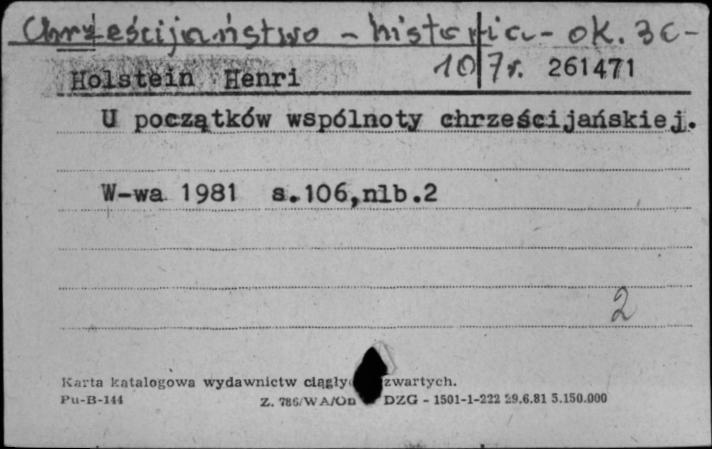 Chrześcijaństwo - historia - ok. 30-
107 r.
Holstein Henri 261471
U początków wspólnoty chrześcijańskiej.
W-wa 1981 s.106,nlb.2
2
Karta katalogowa wydawnictw zwartych.
Pu-B-144 Z. 786/WA/OD DZG - 1501-1-222 29.6.81 5.150.000